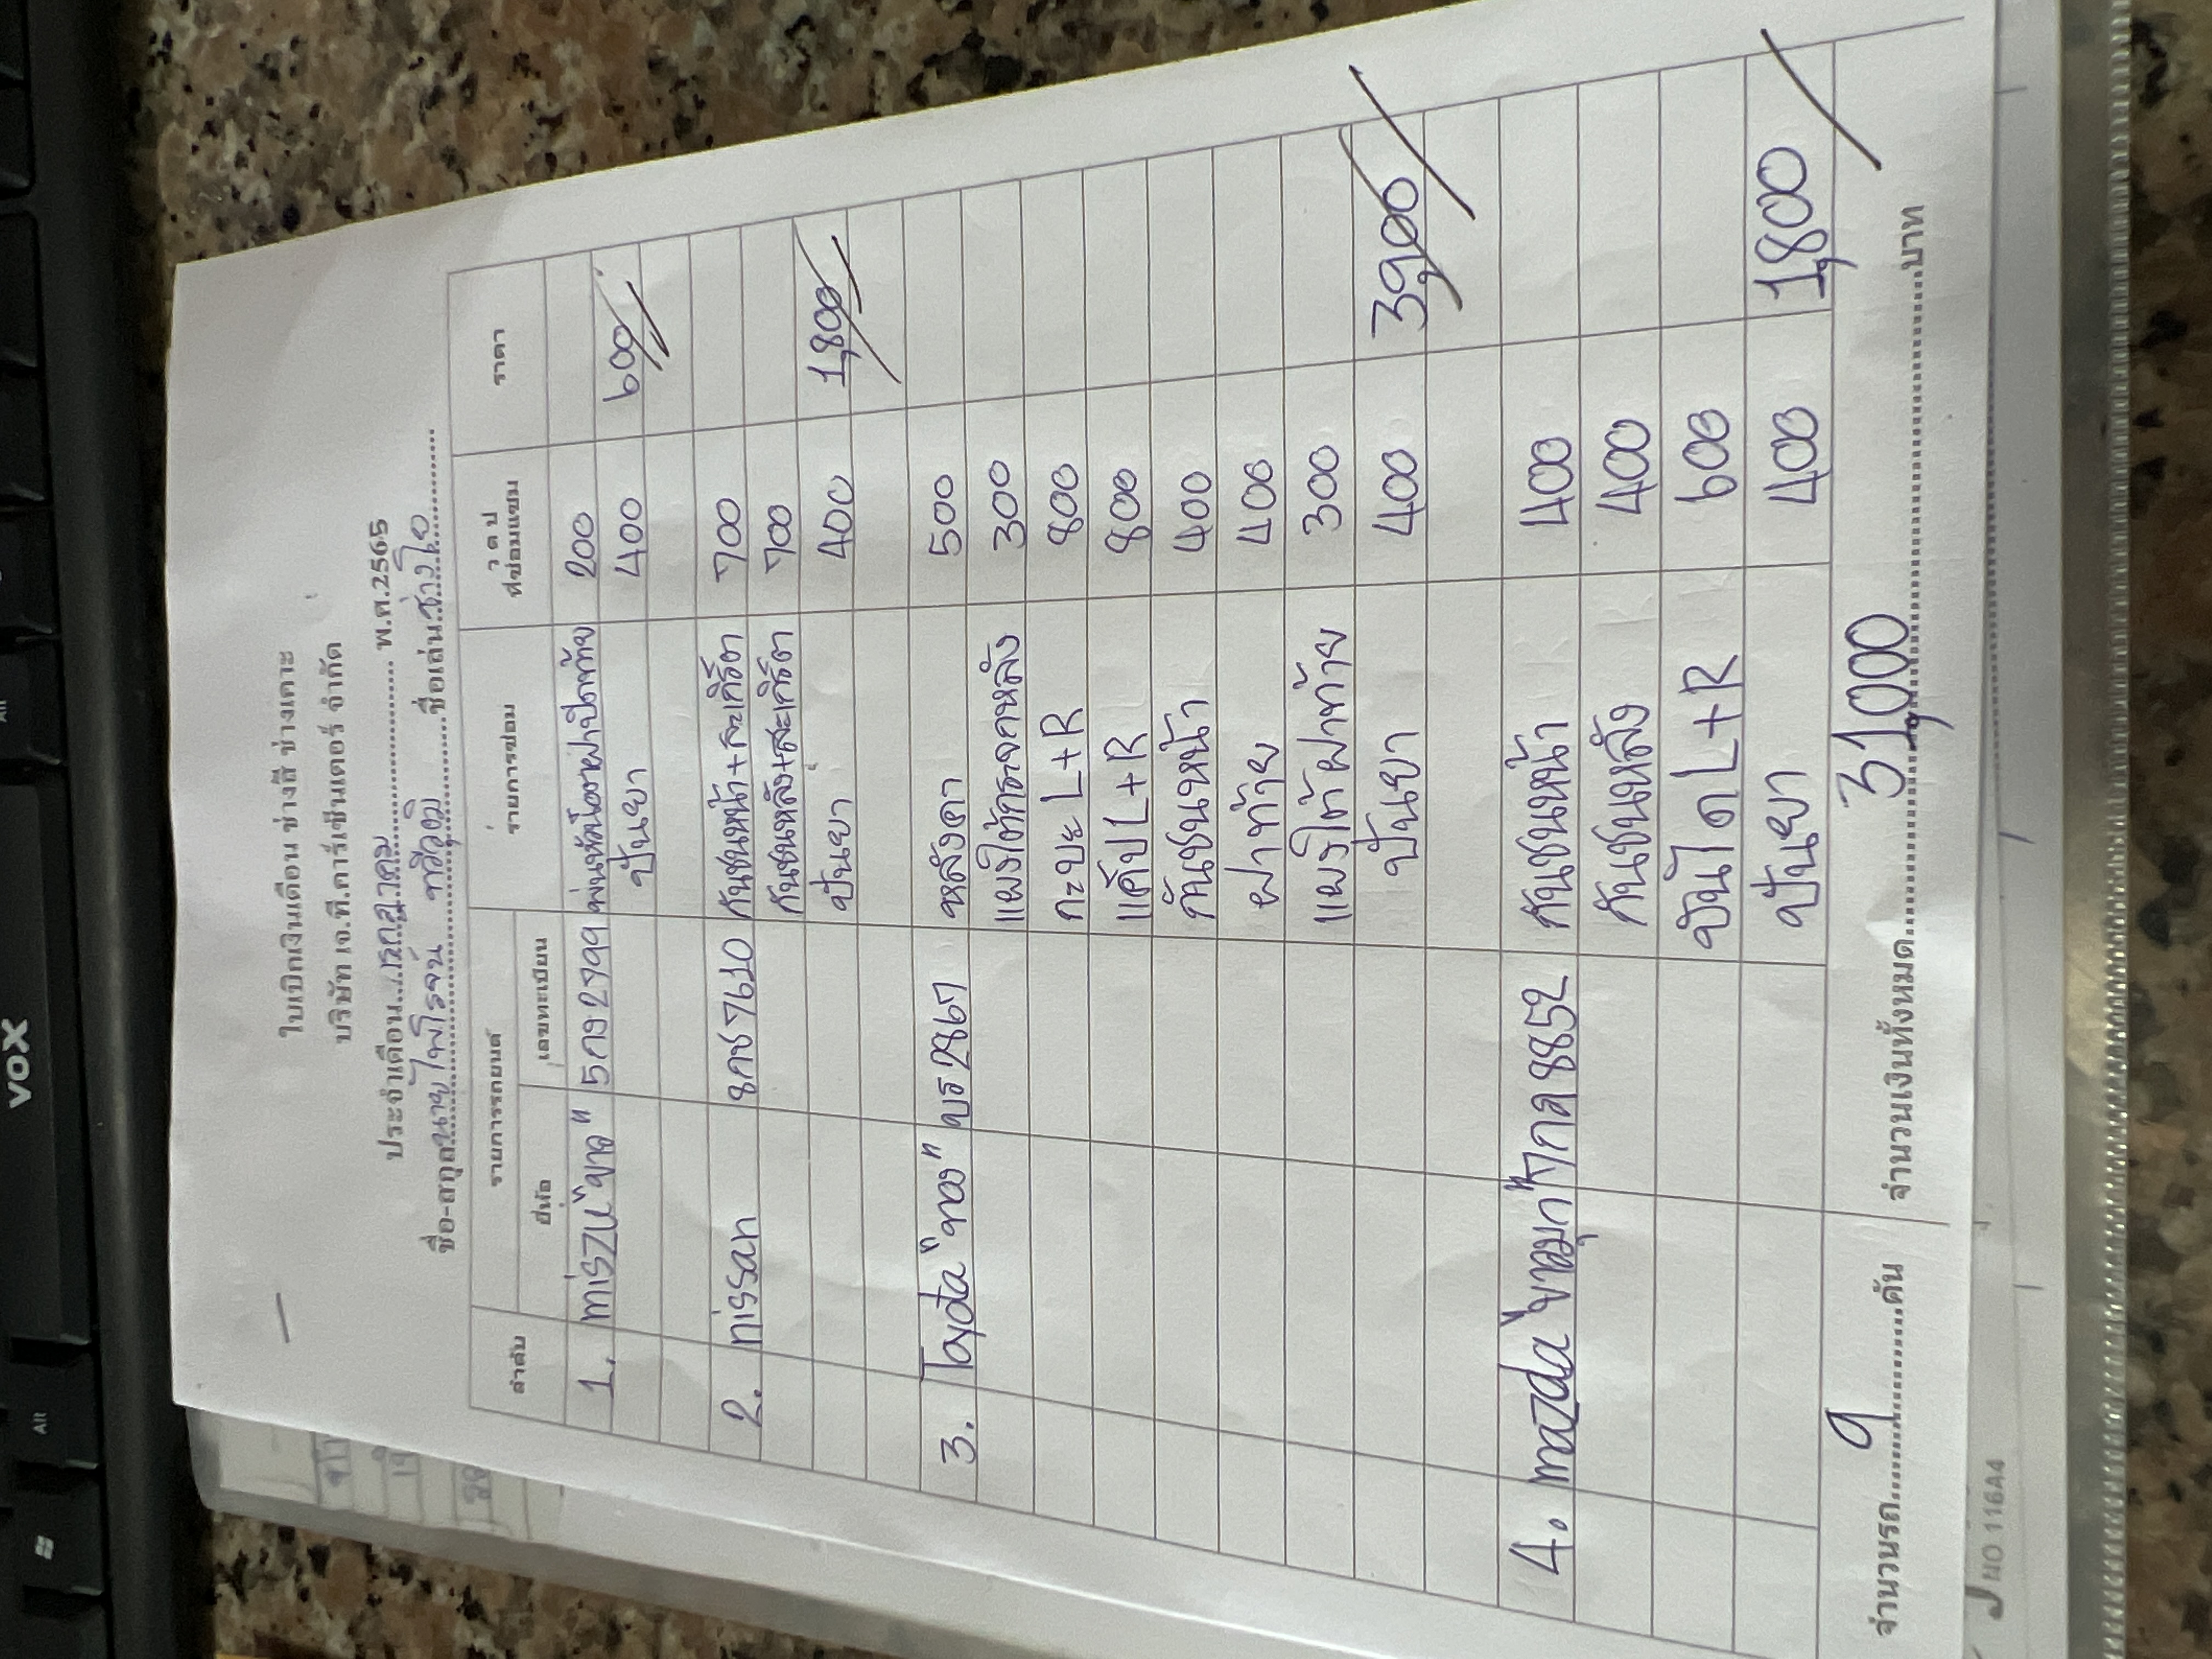 ใบเบิกเงินเดือน ช่างสี ช่างเคาะ
บริษัท เจ.ที.การ์เซ็นเตอร์ จำกัด
ประจำเดือน...กรกฎาคม............ พ.ศ.2565
ชื่อ-สกุล นายไพโรจน์ ทวีวุฒิ ชื่อเล่น ช่างโอ
ลำดับ รายการรถยนต์ รายการซ่อม ว ด ป ที่ซ่อมแซม ราคา
ยี่ห้อ เลขทะเบียน
1. miszu "ขาว" 5กง2799 200
ปั่นยา 400 600
2. nissan 8กช7610 กันชนหน้า+สะเกิร์ต 700
กันชนหลัง+สะเกิร์ต 700
ปั่นยา 400 1,800
3. Toyota "ทอง" บร2867 หลังคา 500
แผงใต้กระจกหลัง 300
กะบะ L+R 800
แค๊ป L+R 800
กันชนหน้า 400
ฝาท้าย 400
แผงใต้ฝาท้าย 300
ปั่นยา 400 3,900
4. mazda "ขาวมุก" 7กล8852 กันชนหน้า 400
กันชนหลัง 400
บันได L+R 600
ปั่นยา 400 1,800
จำนวนรถ......9......คัน จำนวนเงินทั้งหมด......31,000......บาท
NO 116A4
VOX
Alt